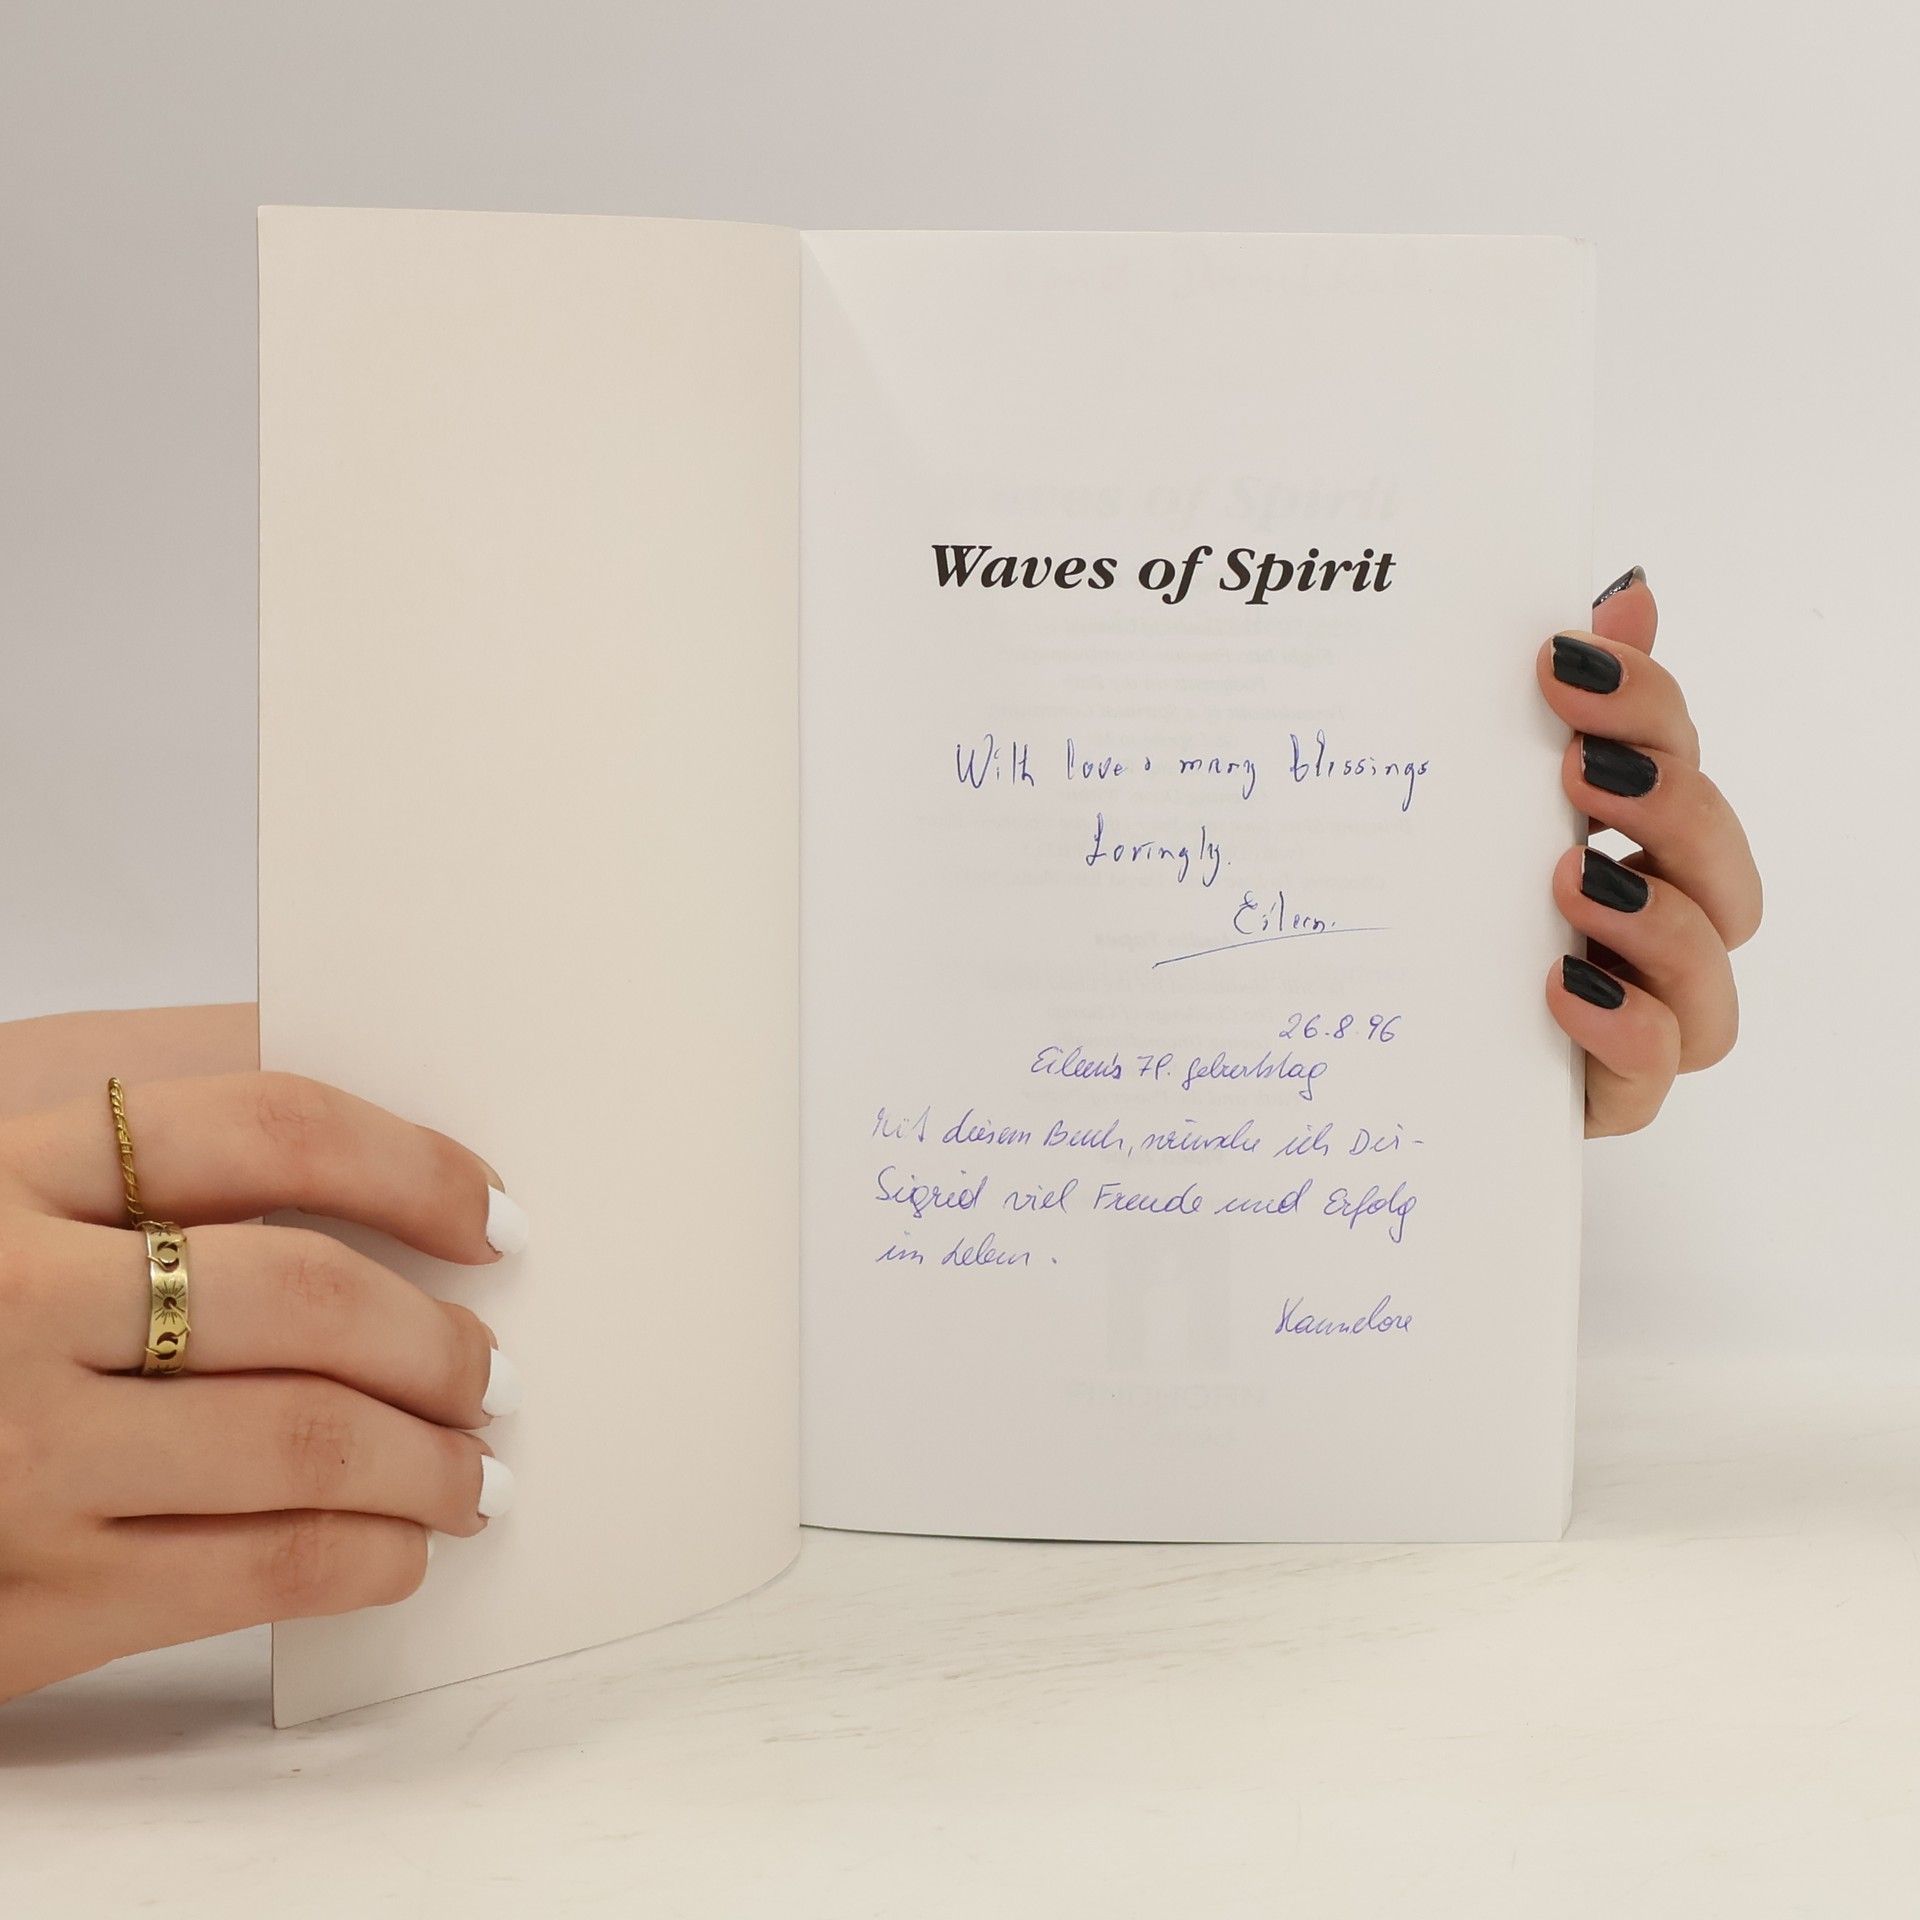 Waves of Spirit
With love & many blessings
Lovingly.
Eileen.
26.8.96
Eileen's 79. Geburtstag
Mit diesem Buch, wünsche ich Dir-
Sigrid viel Freude und Erfolg
im Leben.
Hannelore